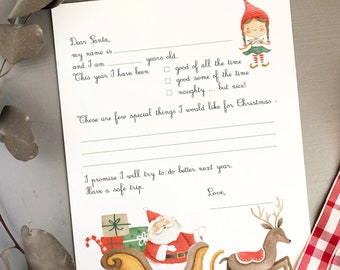 Dear Santa,
my name is
and I am years old.
This year I have been good of all the time
good some of the time
naughty ... but nice!
These are few special things I would like for Christmas :
I promise I will try to do better next year.
Have a safe trip.
Love,